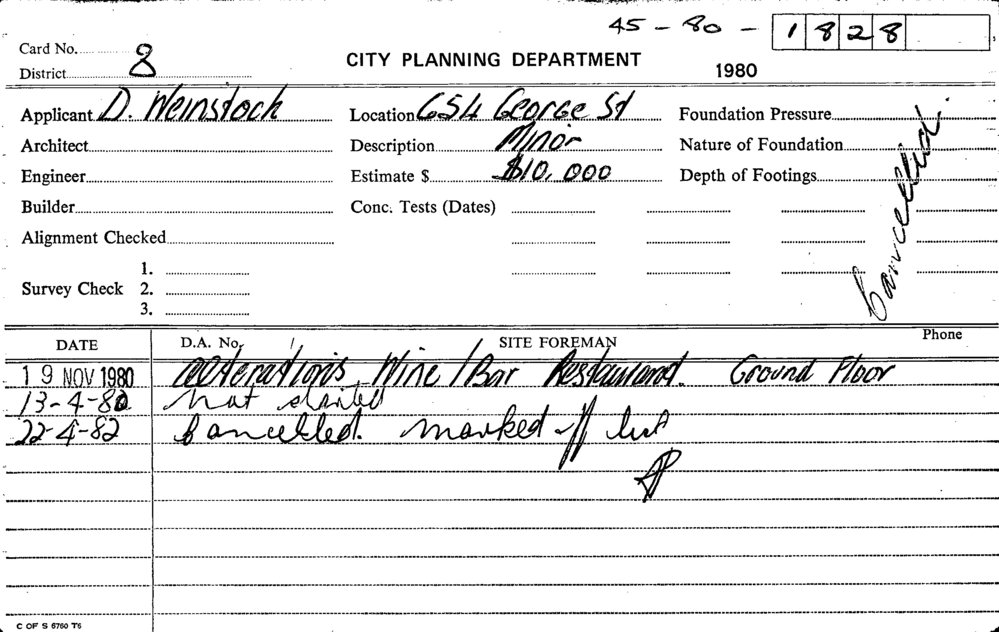 45 - 80 - 1828
Card No.
District 8
CITY PLANNING DEPARTMENT
1980
Applicant D. Weinstock
Location 654 George St
Foundation Pressure
Architect
Description Minor
Nature of Foundation
Engineer
Estimate $ $10,000
Depth of Footings
Builder
Conc. Tests (Dates)
Cancelled.
Alignment Checked
Survey Check 1.
2.
3.
DATE D.A. No. SITE FOREMAN Phone
19 NOV 1980 Alterations, Wine/Bar Restaurant. Ground Floor
13-4-82 Not started
22-4-82 Cancelled. marked off list
C OF S 6760 T6